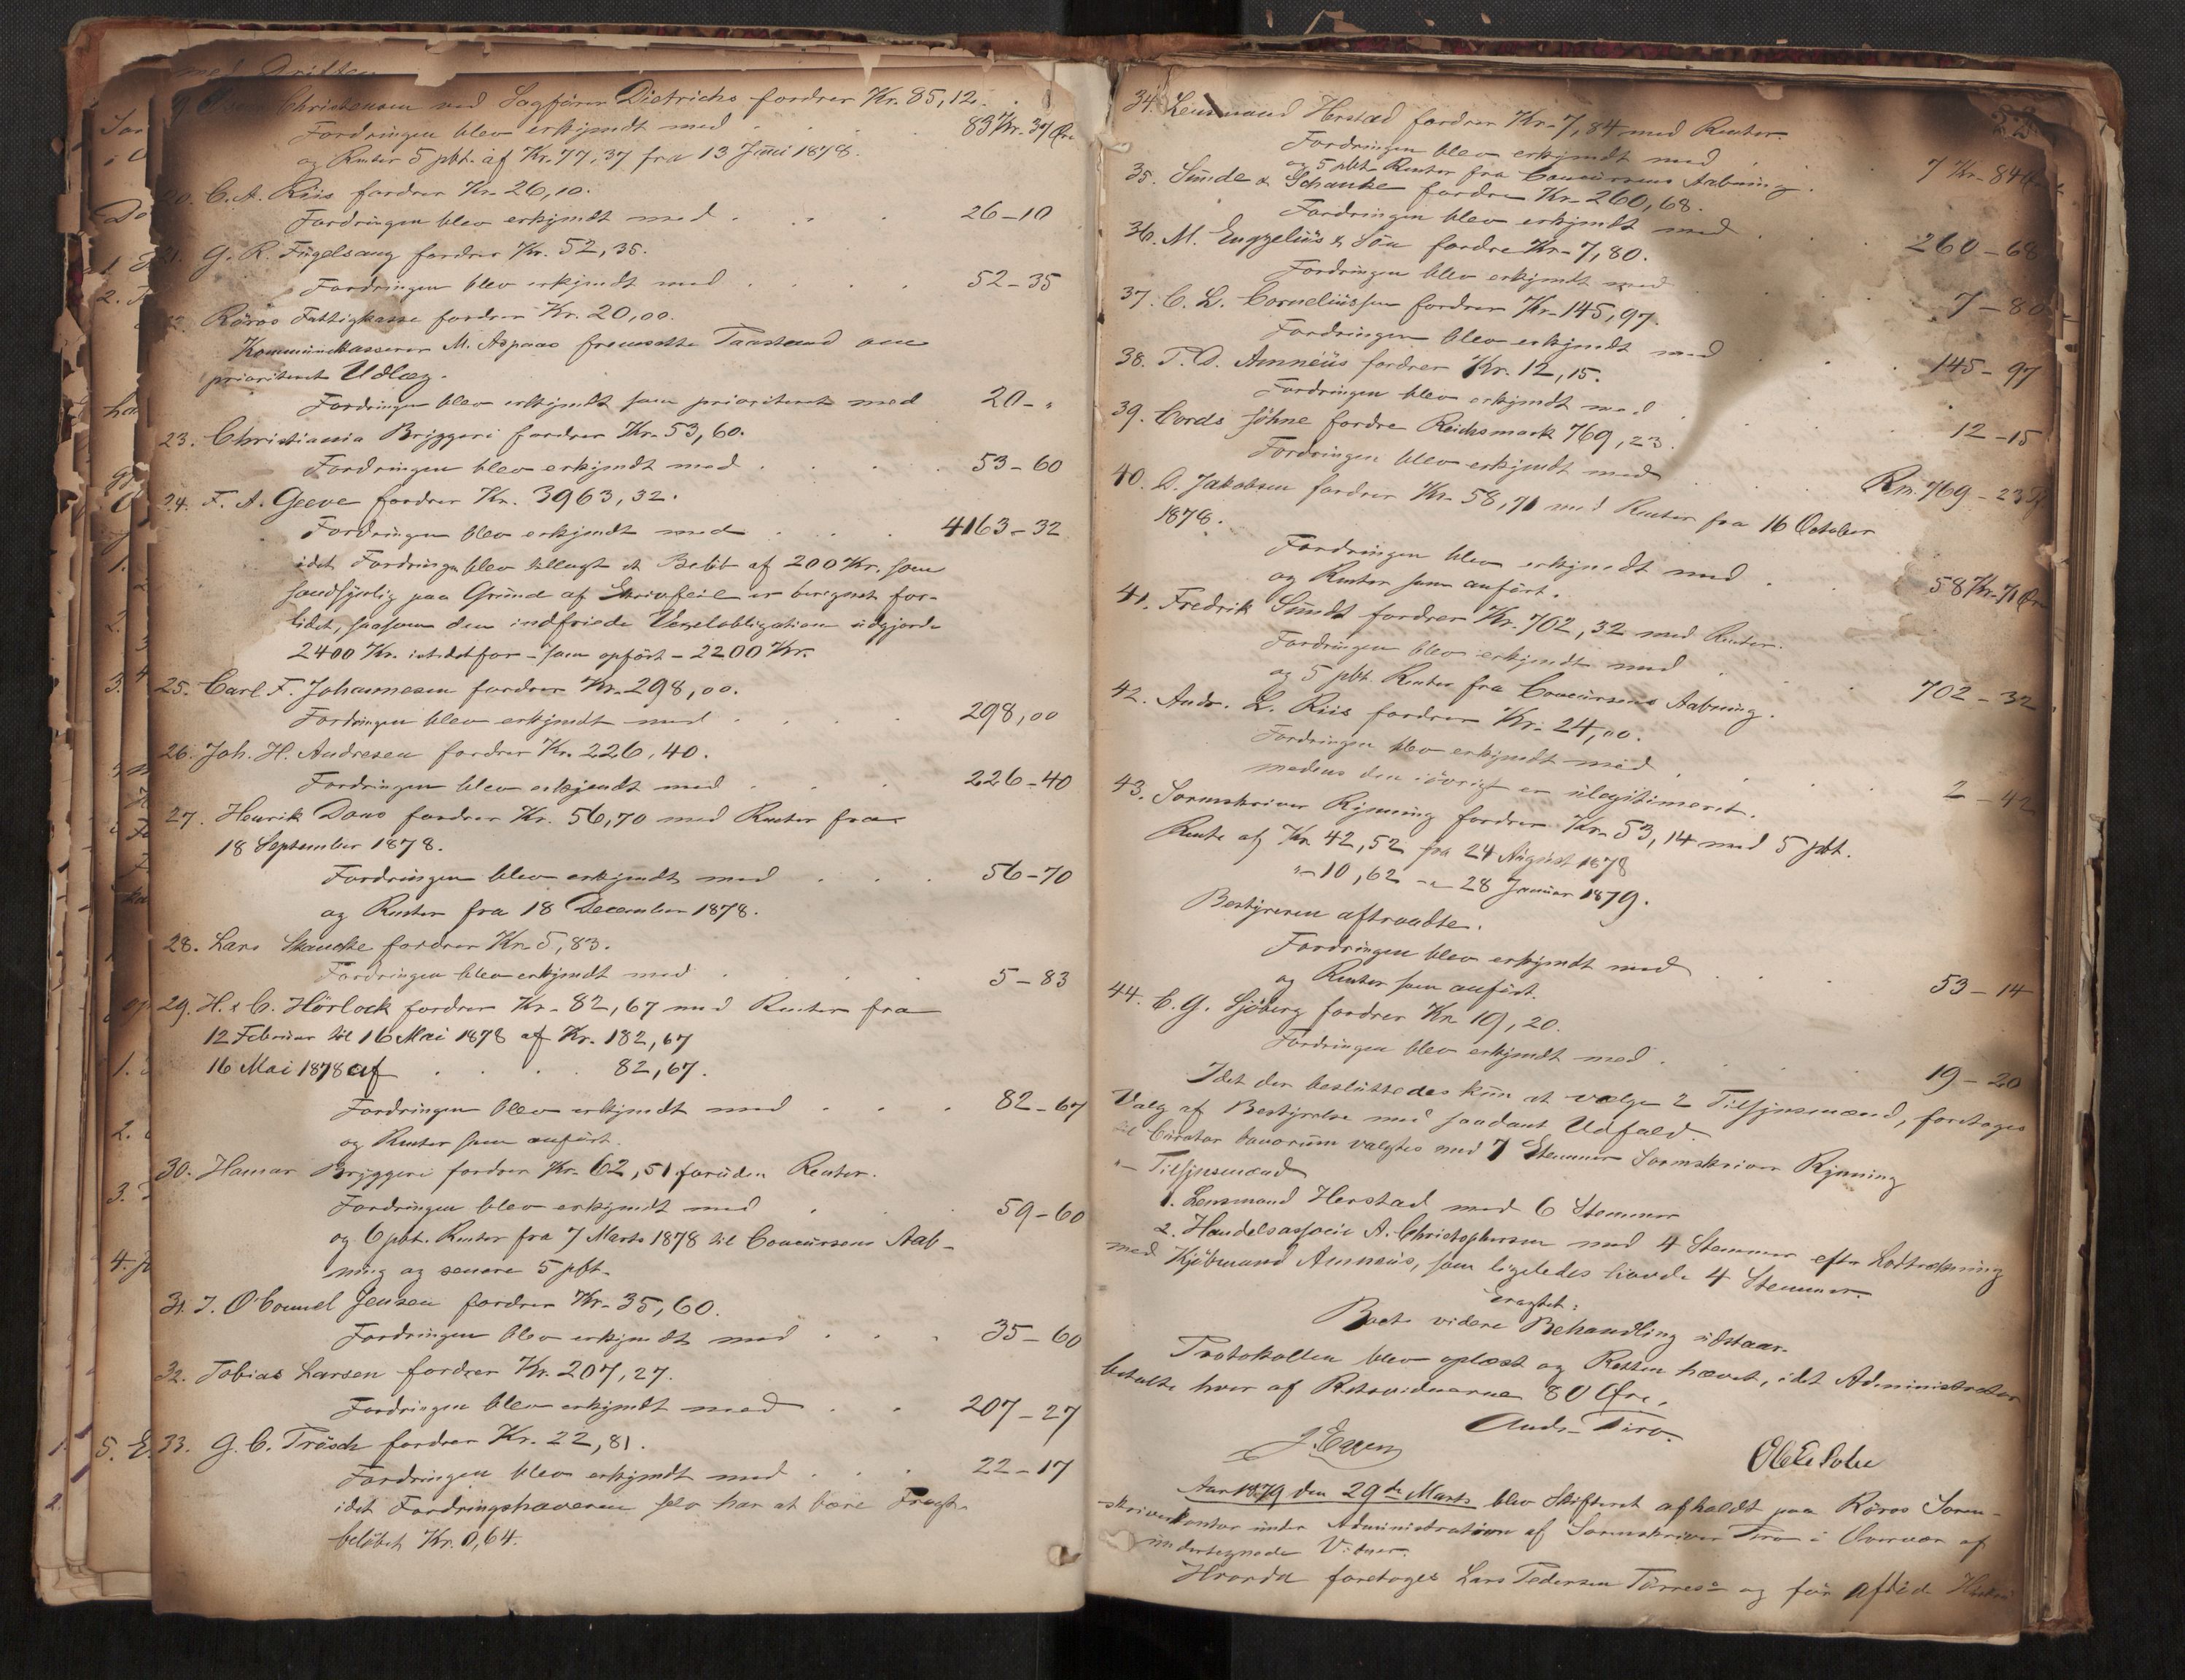 Christensen ved Sagfører Dietrichs fordrer Kr. 85,12.
Fordringen blev erkjendt med . . . . 83 Kr. 37 Øre
og Renter 5 pbt. af Kr. 77,37 fra 13 Juni 1878.
20. C. A. Riis fordrer Kr. 26,10.
Fordringen blev erkjendt med . . . 26-10
21. G. R. Fügelsang fordrer Kr. 52,35.
Fordringen blev erkjendt med . . . . 52-35
Röros Fattigkasse fordrer Kr. 20,00.
Kommunekasserer M. Aspaas fremsatte Paastand om
prioriteret Udlæg.
Fordringen blev erkjendt som prioriteret med 20-"
23. Christiania Bryggeri fordrer Kr. 53,60.
Fordringen blev erkjendt med . . . . 53-60
24. F. A. Geeve fordrer Kr. 3963,32.
Fordringen blev erkjendt med . . . 4163-32
idet Fordringen blev tillagt et Beløb af 200 Kr. som
sandsynlig paa Grund af Skrivfeil er beregnet for-
lidet, saasom den indfriede Vexelobligation udgjorde
2400 Kr. istedetfor - som opført - 2200 Kr.
25. Carl F. Johannesen fordrer Kr. 298,00.
Fordringen blev erkjendt med . . . . 298,00
26. Joh. H. Andresen fordrer Kr. 226,40.
Fordringen blev erkjendt med . . . 226-40
27. Henrik Dons fordrer Kr. 56,70 med Renter fra
18 September 1878.
Fordringen blev erkjendt med . . . 56-70
og Renter fra 18 December 1878.
28. Lars Skancke fordrer Kr. 5,83.
Fordringen blev erkjendt med . . . . 5-83
29. H. & C. Hörlock fordrer Kr. 82,67 med Renter fra
12 Februar til 16 Mai 1878 af Kr. 182,67
16 Mai 1878 af . . . . 82,67.
Fordringen blev erkjendt med . . . 82-67
og Renter som anført.
30. Hamar Bryggeri fordrer Kr. 62,51 foruden Renter.
Fordringen blev erkjendt med . . . 59-60
og 6 pbt. Renter fra 7 Marts 1878 til Concursens Aab-
ning og senere 5 pbt.
31. J. O'Connel Jensen fordrer Kr. 35,60.
Fordringen blev erkjendt med . . . 35-60
32. Tobias Larsen fordrer Kr. 207,27.
Fordringen blev erkjendt med . . 207-27
33. G. C. Trösch fordrer Kr. 22,81.
Fordringen blev erkjendt med . . . 22-17
idet Fordringshaveren selv har at bære Fragt-
beløbet Kr. 0,64.
34. Lensmand Herstad fordrer Kr. 7,84 med Renter
Fordringen blev erkjendt med . . 7 Kr. 84 Øre
og 5 pbt. Renter fra Concursens Aabning.
35. Sunde & Schanke fordrer Kr. 260,68.
Fordringen blev erkjendt med . . . 260-68
36. M. Enggelius & Søn fordre Kr. 7,80.
Fordringen blev erkjendt med 7-80
37. C. L. Corneliussen fordrer Kr. 145,97.
Fordringen blev erkjendt med . . 145-97
38. T. O. Amnéus fordrer Kr. 12,15.
Fordringen blev erkjendt med . . . 12-15
39. Cords söhne fordre Reichsmark 769,23.
Fordringen blev erkjendt med . . . Rm. 769-23
40. D. Jakobsen fordrer Kr. 58,71 med Renter fra 16 October
1878.
Fordringen blev erkjendt med . . 58 Kr. 71 Øre
og Renter som anført.
41. Fredrik Sundt fordrer Kr. 702,32 med Renter.
Fordringen blev erkjendt med . . . 702-32
og 5 pbt. Renter fra Concursens Aabning.
42. Andr. L. Riis fordrer Kr. 24,00.
Fordringen blev erkjendt med . . . 2-42
medens den iøvrigt er ulegitimeret.
43. Sorenskriver Rynning fordrer Kr. 53,14 med 5 pbt.
Rente af Kr. 42,52 fra 24 August 1878
"- 10,62 -"- 28 Januar 1879.
Bestyreren aftraadte.
Fordringen blev erkjendt med . . . 53-14
og Renter som anført.
44. C. G. Sjöberg fordrer Kr. 19,20.
Fordringen blev erkjendt med . . . 19-20
Idet der besluttedes kun at vælge 2 Tilsynsmænd, foretoges
Valg af Bestyrelse med saadant Udfald:
til Curator bonorum valgtes med 7 Stemmer Sorenskriver Rynning
"- Tilsynsmænd
1. Lensmand Herstad med 6 Stemmer
2. Handelsassocie A. Christophersen med 4 Stemmer efter Lodtrækning
med Kjöbmand Amnéus, som ligeledes havde 4 Stemmer.
Eragtet:
Boets videre Behandling udstaar.
Protokollen blev oplæst og Retten hævet, idet Administrator
betalte hver af Retsvidnerne 80 Øre.
Ands. Piro.
J. Eggen
Aar 1879 den 29de Marts blev Skifteret afholdt paa Röros Soren-
skriverkontor under Administration af Sorenskriver Piro i Overvær af
undertegnede Vidner.
Hvorda foretoges Lars Pedersen og før afdöde